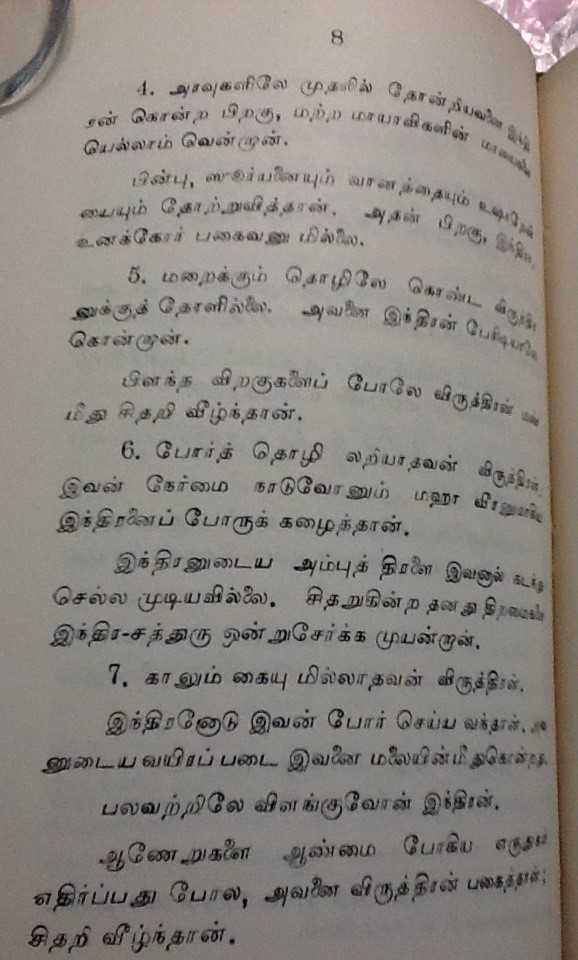 8
4. அரவுகளிலே முதலில் தோன்றியவனை இந்தி
ரன் கொன்ற பிறகு, மற்ற மாயாவிகளின்
யெல்லாம் வென்றான்.
பின்பு, ஸூர்யனையும் வானத்தையும்
யையும் தோற்றுவித்தான். அதன் பிறகு, இந்திரா,
உனக்கோர் பகைவனு மில்லை.
5. மறைக்கும் தொழிலே கொண்ட விருத்திர
னுக்குத் தோளில்லை. அவனை இந்திரன் பேரிடியாலே
கொன்றான்.
பிளந்த விறகுகளைப் போலே விருத்திரன்
மீது சிதறி வீழ்ந்தான்.
6. போர்த் தொழி லறியாதவன் விருத்திரன்.
இவன் நேர்மை நாடுவோனும் மஹா வீரனுமாகிய
இந்திரனைப் போருக் கழைத்தான்.
இந்திரனுடைய அம்புத் திரளை இவனால் கடந்து
செல்ல முடியவில்லை. சிதறுகின்ற தனது திறமைகளை
இந்திர-சத்துரு ஒன்றுசேர்க்க முயன்றான்.
7. காலும் கையு மில்லாதவன் விருத்திரன்.
இந்திரனோடு இவன் போர் செய்ய வந்தான். அவ
னுடைய வயிரப் படை இவனை மலையின்மீதுகொன்றது.
பலவற்றிலே விளங்குவோன் இந்திரன்.
ஆணேறுகளை ஆண்மை போகிய எருதுகள்
எதிர்ப்பது போல, அவனை விருத்திரன் பகைத்தான்;
சிதறி வீழ்ந்தான்.